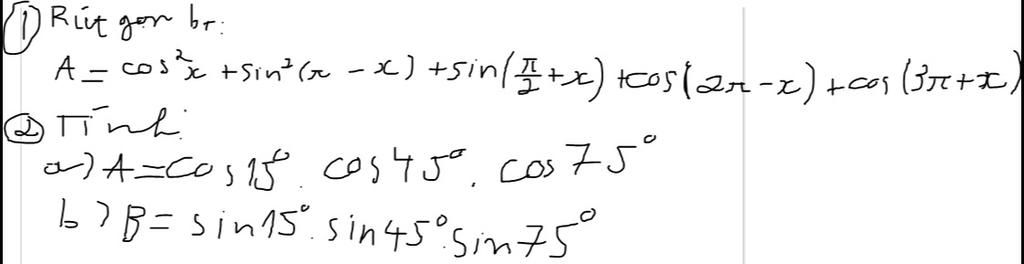 ① Rút gọn bt:
A = cos²x + sin²(π - x) + sin(π/2 + x) + cos(2π - x) + cos(3π + x)
② Tính:
a) A = cos15°. cos45°. cos75°
b) B = sin15°. sin45°. sin75°